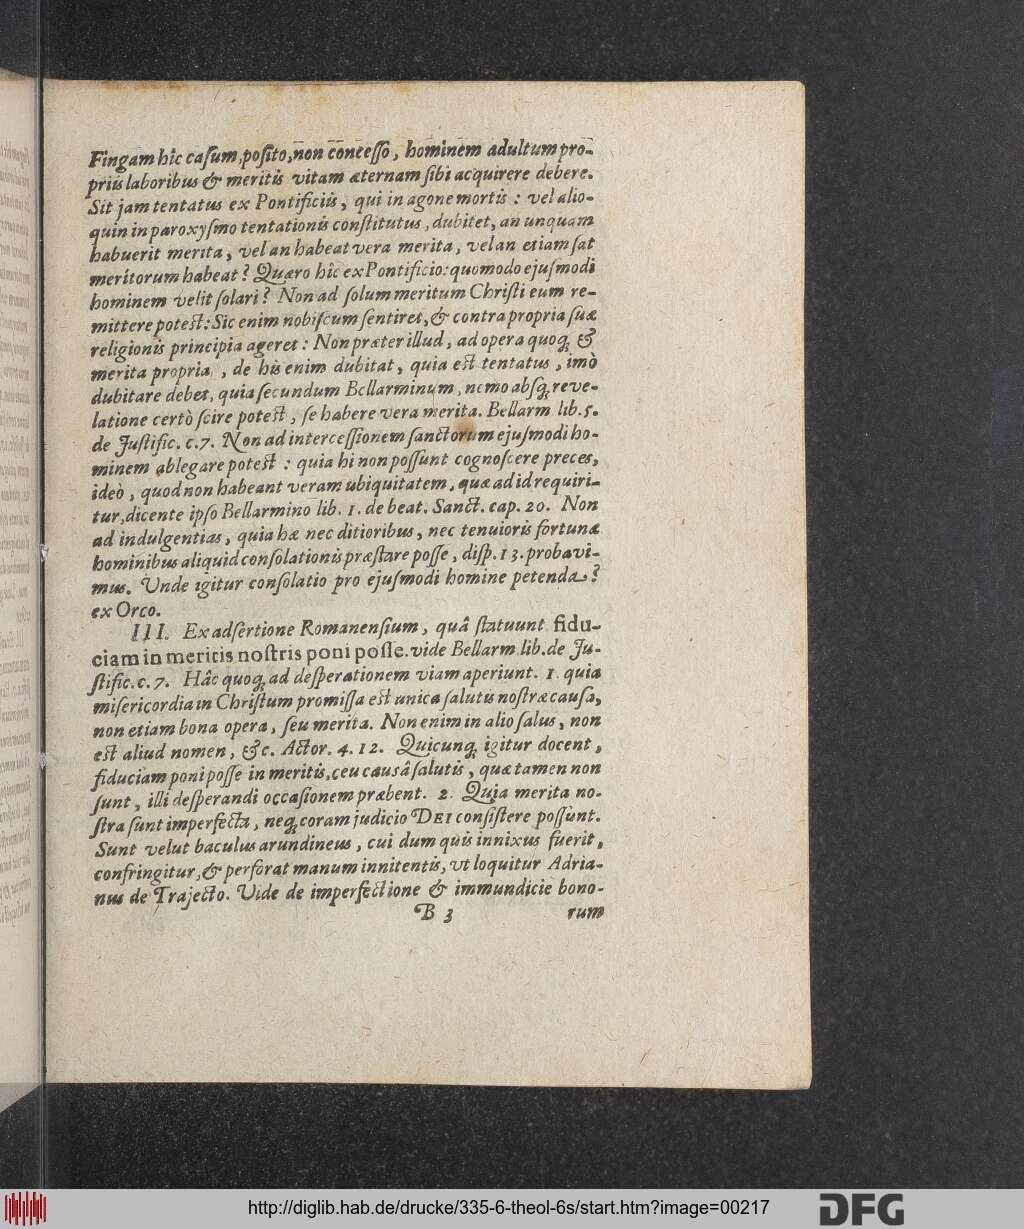 Fingam hîc caſum, poſito, non conceſſo, hominem adultum pro-
priis laboribus & meritis vitam æternam ſibi acquirere debere.
Sit jam tentatus ex Pontificiis, qui in agone mortis: vel alio-
quin in paroxyſmo tentationis conſtitutus, dubitet, an unquam
habuerit merita, vel an habeat vera merita, vel an etiam ſat
meritorum habeat? Quæro hîc ex Pontificio: quomodo ejuſmodi
hominem velit ſolari? Non ad ſolum meritum Chriſti eum re-
mittere poteſt: Sic enim nobiſcum ſentiret, & contra propria ſuæ
religionis principia ageret: Non præter illud, ad opera quoq; &
merita propria, de his enim dubitat, quia eſt tentatus, imò
dubitare debet, quia ſecundum Bellarminum, nemo abſq; reve-
latione certò ſcire poteſt, ſe habere vera merita. Bellarm lib. 5.
de Juſtific. c. 7. Non ad interceſſionem ſanctorum ejuſmodi ho-
minem ablegare poteſt: quia hi non poſſunt cognoſcere preces,
ideò, quod non habeant veram ubiquitatem, quæ ad id requiri-
tur, dicente ipſo Bellarmino lib. 1. de beat. Sanct. cap. 20. Non
ad indulgentias, quia hæ nec ditioribus, nec tenuioris fortunæ
hominibus aliquid conſolationis præſtare poſſe, diſp. 13. probavi-
mus. Unde igitur conſolatio pro ejuſmodi homine petenda?
ex Orco.
III. Ex adſertione Romanenſium, quâ ſtatuunt fidu-
ciam in meritis noſtris poni poſſe. vide Bellarm lib. de Ju-
ſtific. c. 7. Hâc quoq; ad deſperationem viam aperiunt. 1. quia
miſericordia in Chriſtum promiſſa eſt unica ſalutis noſtræ cauſa,
non etiam bona opera, ſeu merita. Non enim in alio ſalus, non
eſt aliud nomen, &c. Actor. 4. 12. Quicunq; igitur docent,
fiduciam poni poſſe in meritis, ceu causâ ſalutis, quæ tamen non
ſunt, illi deſperandi occaſionem præbent. 2. Quia merita no-
ſtra ſunt imperfecta, neq; coram judicio DEI conſiſtere poſſunt.
Sunt velut baculus arundineus, cui dum quis innixus fuerit,
confringitur, & perforat manum innitentis, ut loquitur Adria-
nus de Trajecto. Vide de imperfectione & immundicie bono-
B 3 rum
http://diglib.hab.de/drucke/335-6-theol-6s/start.htm?image=00217
DFG